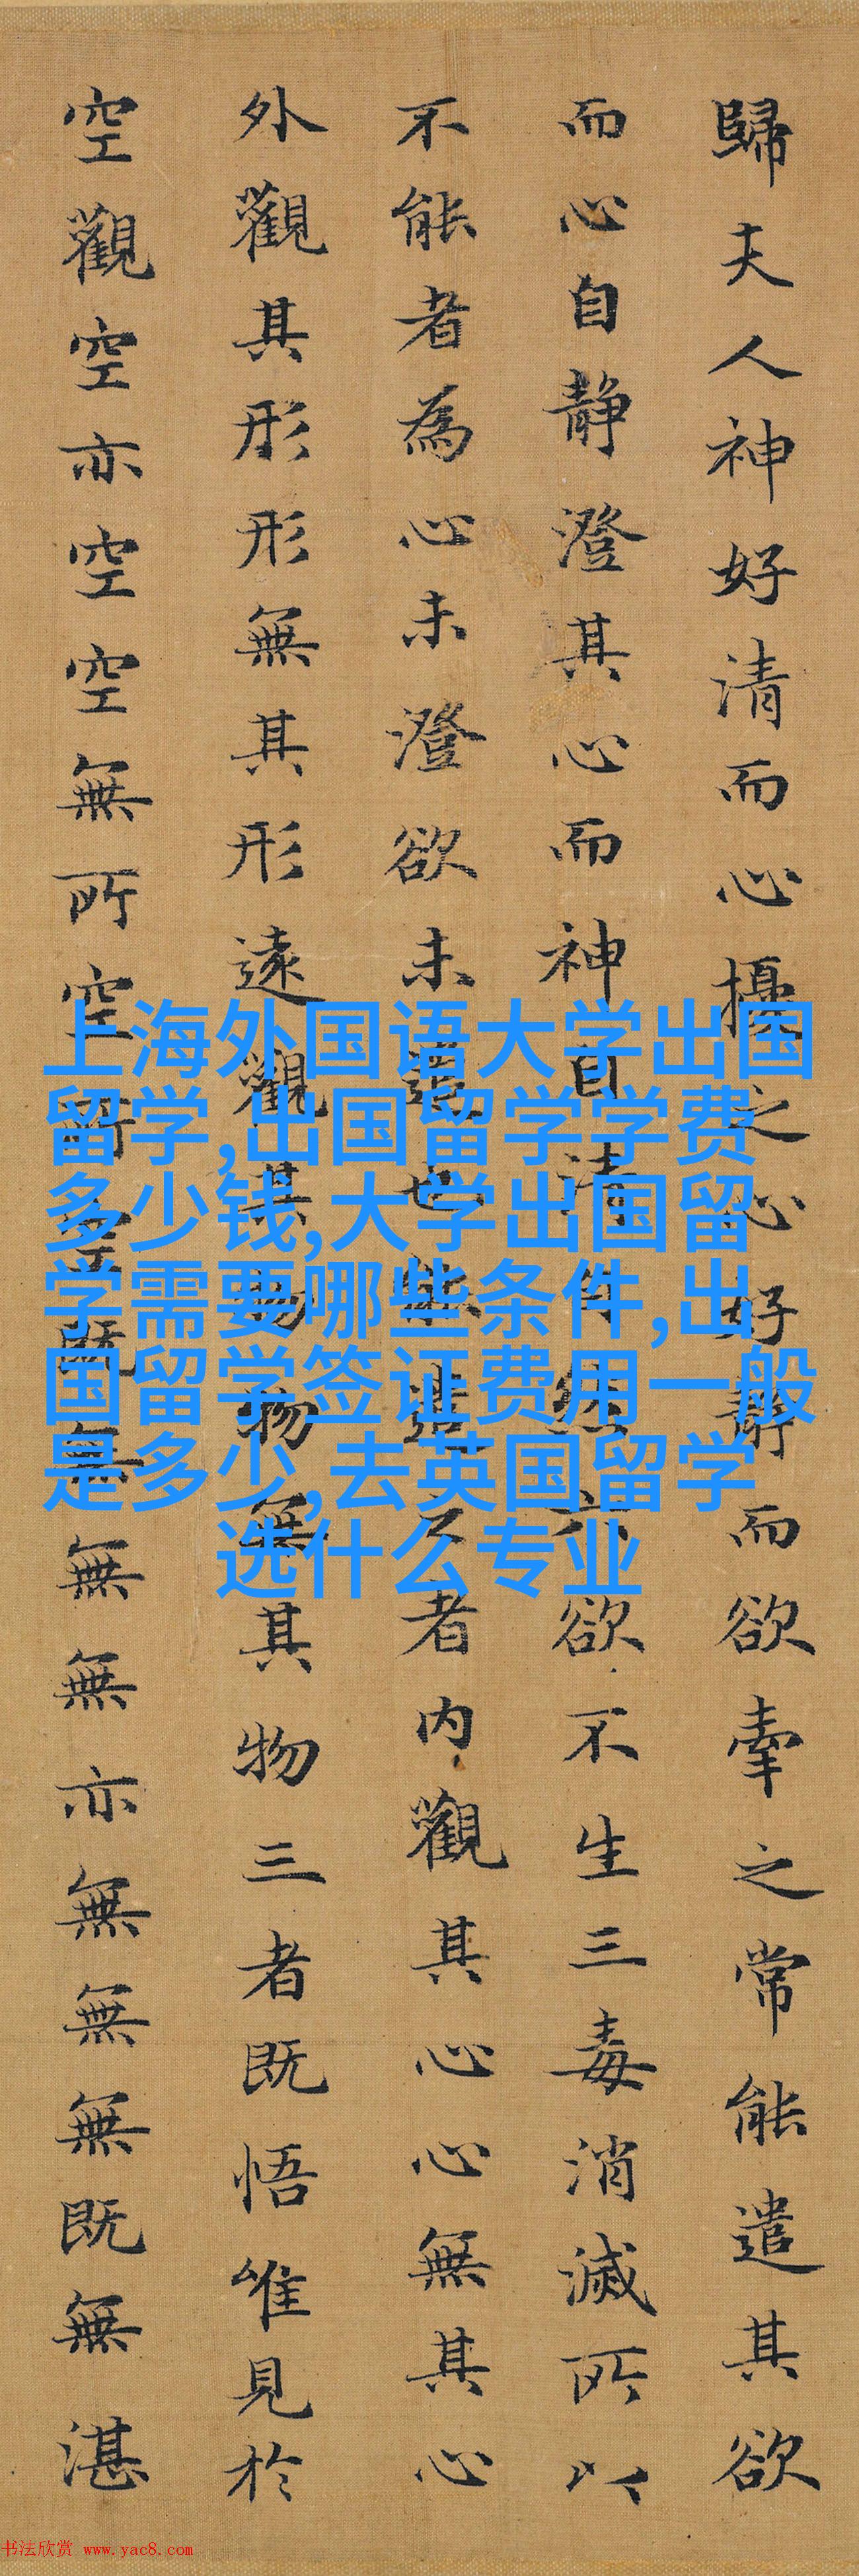 歸夫人神好清而心擾之心好靜而欲牽之常能遣其欲
而心自静澄其心而神自清自然六欲不生三毒消滅所以
不能者為心未澄欲未遣也能遣之者内觀其心心無其心
外觀其形形無其形遠觀其物物無其物三者既悟唯見於
空觀空亦空空無所空所空既無無無亦無無無既無湛
上海外国语大学出国
留学,出国留学学费
多少钱,大学出国留
学需要哪些条件,出
国留学签证费用一般
是多少,去英国留学
选什么专业
书法欣赏 www.yac8.com